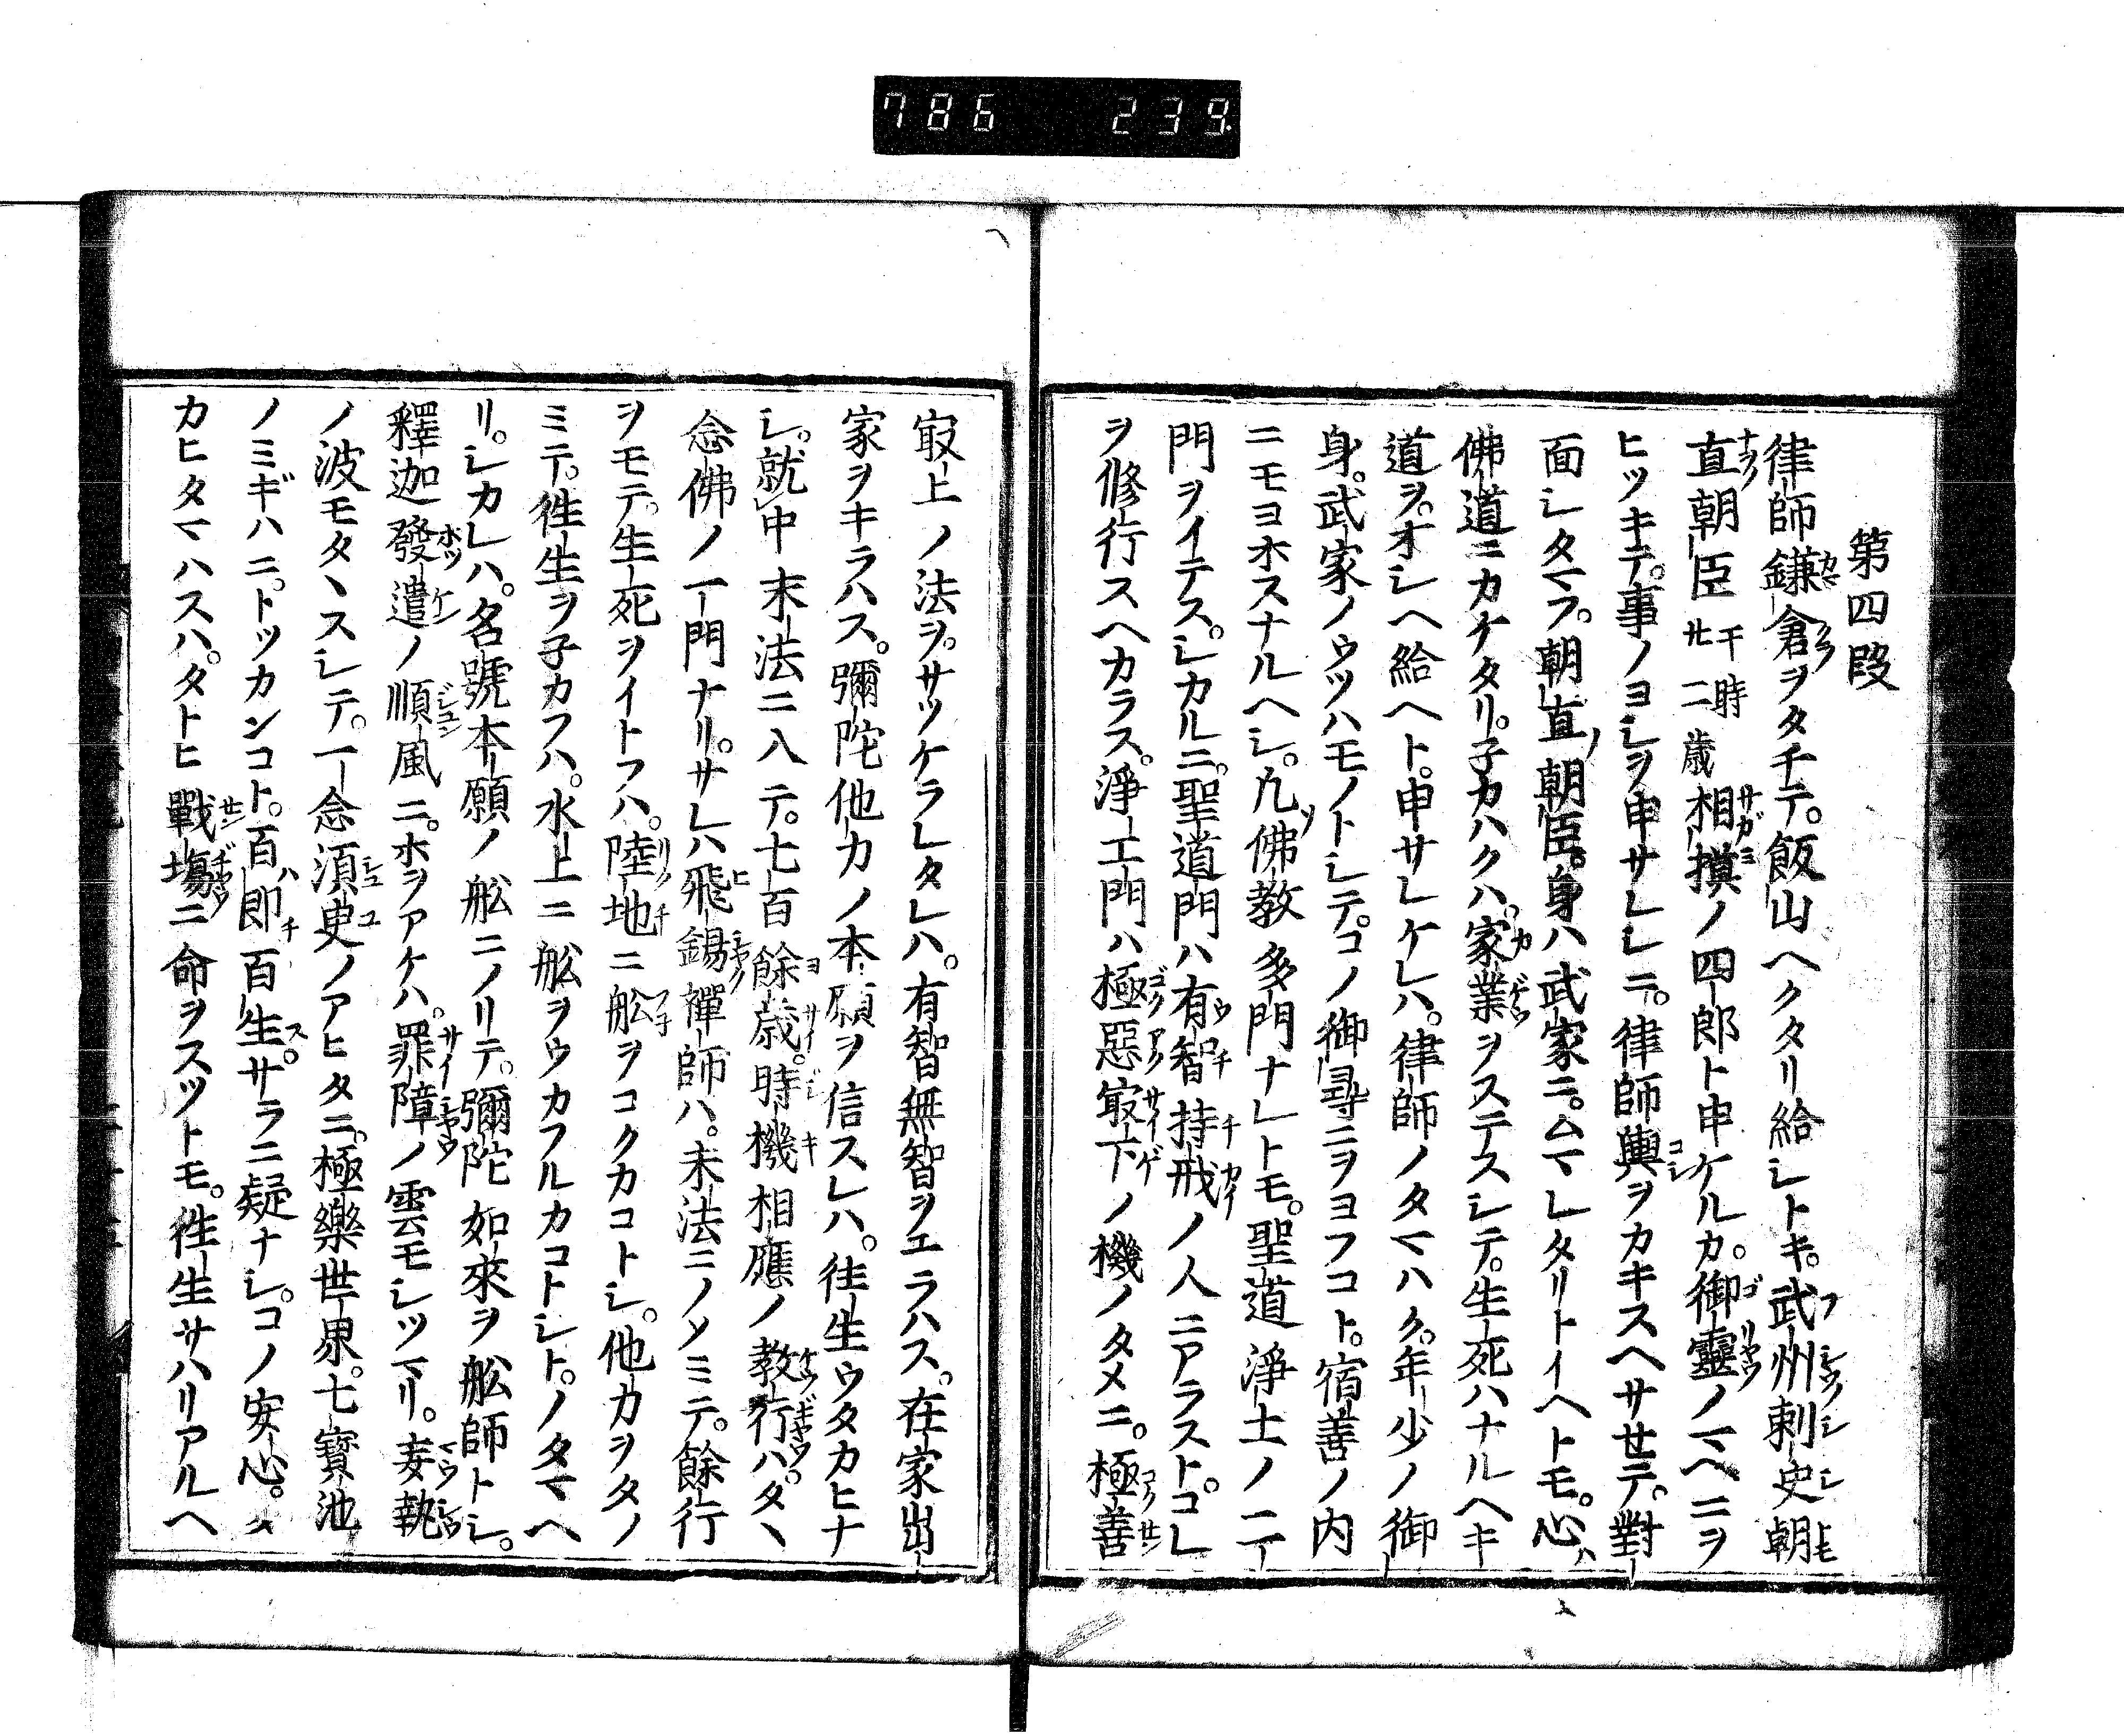 786 239.
第四段
律師鎌倉ヲタチテ。飯山ヘクタリ給シトキ。武州刺史朝
直朝臣于時廿二歳相摸ノ四郎ト申ケルカ。御靈ノマヘニヲ
ヒツキテ。事ノヨシヲ申サレシニ。律師輿ヲカキスヘサセテ。對
面シタマフ。朝直ノ朝臣。身ハ武家ニ。ムマレタリトイヘトモ。心ハ
佛道ニカケタリ。子カハクハ。家業ヲステスシテ。生死ハナルヘキ
道ヲ。オシヘ給ヘト。申サレケレハ。律師ノタマハク。年少ノ御
身。武家ノウツハモノトシテ。コノ御尋ニヲヨフコト。宿善ノ内
ニモヨホスナルヘシ。凡佛教多門ナレトモ。聖道淨土ノ二
門ヲイテス。シカルニ。聖道門ハ有智持戒ノ人ニアラスト。コレ
ヲ修行スヘカラス。淨土門ハ極惡㝡下ノ機ノタメニ。極善
㝡上ノ法ヲ。サツケラレタレハ。有智無智ヲエラハス。在家出
家ヲキラハス。彌陀他力ノ本願ヲ信スレハ。往生ウタカヒナ
シ。就中末法ニ入テ。七百餘歳。時機相應ノ教行ハ。タヽ
念佛ノ一門ナリ。サレハ飛錫禪師ハ。末法ニノソミテ。餘行
ヲモテ。生死ヲイトフハ。陸地ニ舩ヲコクカコトシ。他力ヲタノ
ミテ。徃生ヲ子カフハ。水上ニ舩ヲウカフルカコトシト。ノタマヘ
リ。シカレハ。名號本願ノ舩ニノリテ。彌陀如來ヲ舩師トシ。
釋迦發遣ノ順風ニ。ホヲアケハ。罪障ノ雲モシツマリ。妄執
ノ波モタヽスシテ。一念須臾ノアヒタニ。極樂世界。七寳池
ノミギハニ。トツカンコト。百即百生。サラニ疑ナシ。コノ安心。タ
カヒタマハスハ。タトヒ戰塲ニ命ヲスツトモ。徃生サハリアルヘ